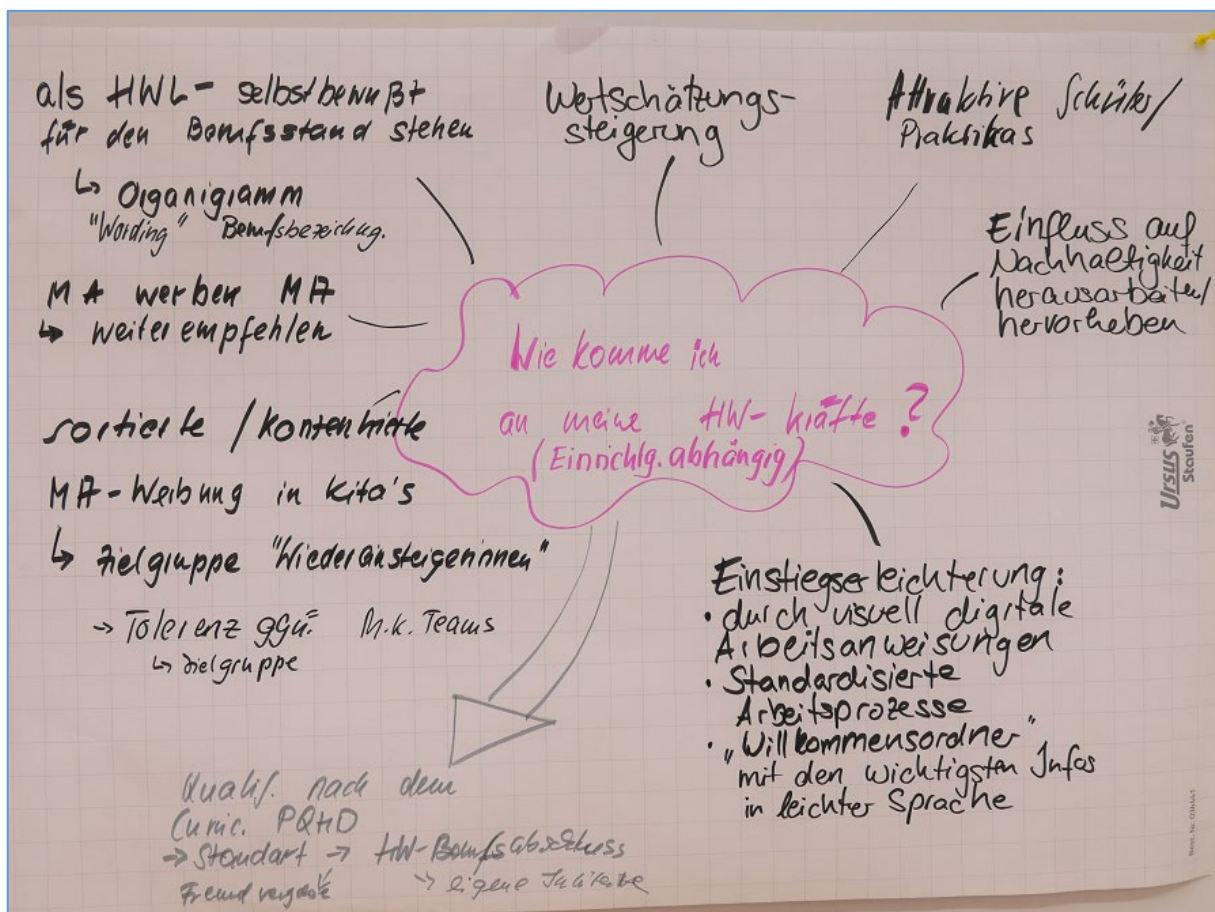 als HWL- selbstbewußt
für den Berufsstand stehen
↳ Organigramm
"Wording" Berufsbezeichng.
MA werben MA
↳ weiterempfehlen
sortierte / konzentrierte
MA-Werbung in Kita's
↳ Zielgruppe "Wiedereinsteigerinnen"
→ Tolerenz ggü. M.k. Teams
↳ Zielgruppe
Wertschätzungs-
steigerung
Attraktive Schüler/
Praktikas
Einfluss auf
Nachhaltigkeit
herausarbeiten/
hervorheben
Wie komme ich
an meine HW-kräfte?
(Einrichtg. abhängig)
Einstiegserleichterung:
• durch visuell digitale
Arbeitsanweisungen
• Standardisierte
Arbeitsprozesse
• „Willkommensordner"
mit den wichtigsten Infos
in leichter Sprache
Qualif. nach dem
Curric. PQHD
→ Standart → HW-Berufsabschluss
Fremdvergabe → eigene
Ursus
Staufen